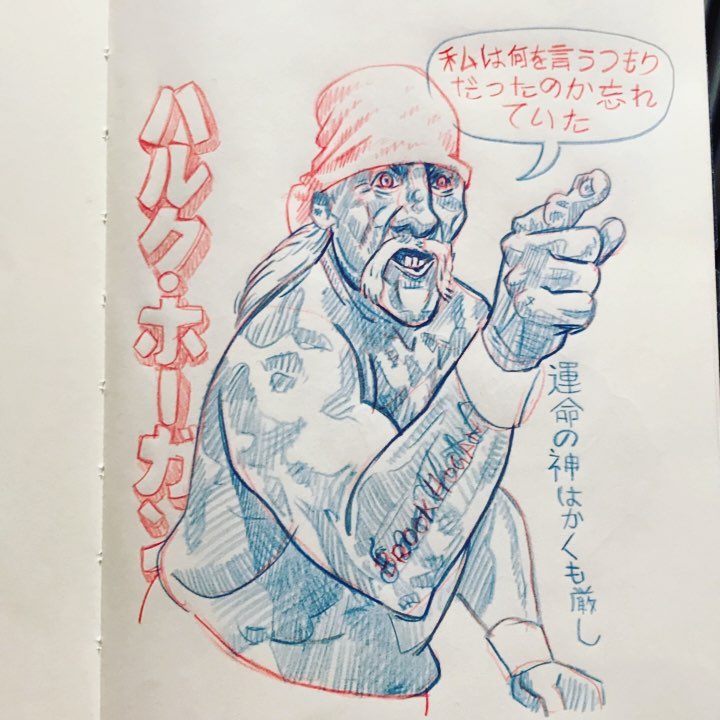 ハルク・ホーガン
私は何を言うつもり
だったのか忘れ
ていた
運命の神はかくも厳し
BROOK HOGAN